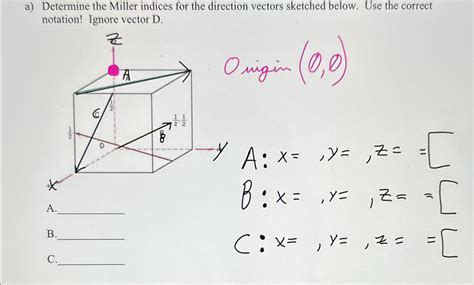 a) Determine the Miller indices for the direction vectors sketched below. Use the correct
notation! Ignore vector D.
Z
A
Origin (0,0)
C
1/2
1/2 1/2
B
1/2
D
y
A: x= , y= , z= =[
X
A.
B: x= , y= , z= =[
B.
C: x= , y= , z= =[
C.